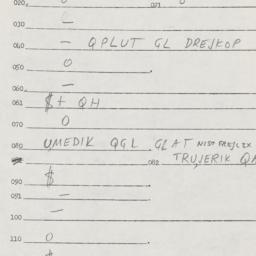 020. 021
030 —
040 — QPLUT GL DREJKOP
050 O
060 —
061 $+ QH
070 O
080 UMEDIK QGL GLAT
082 TRUJERIK
090 $
091 —
100 —
110 O
$